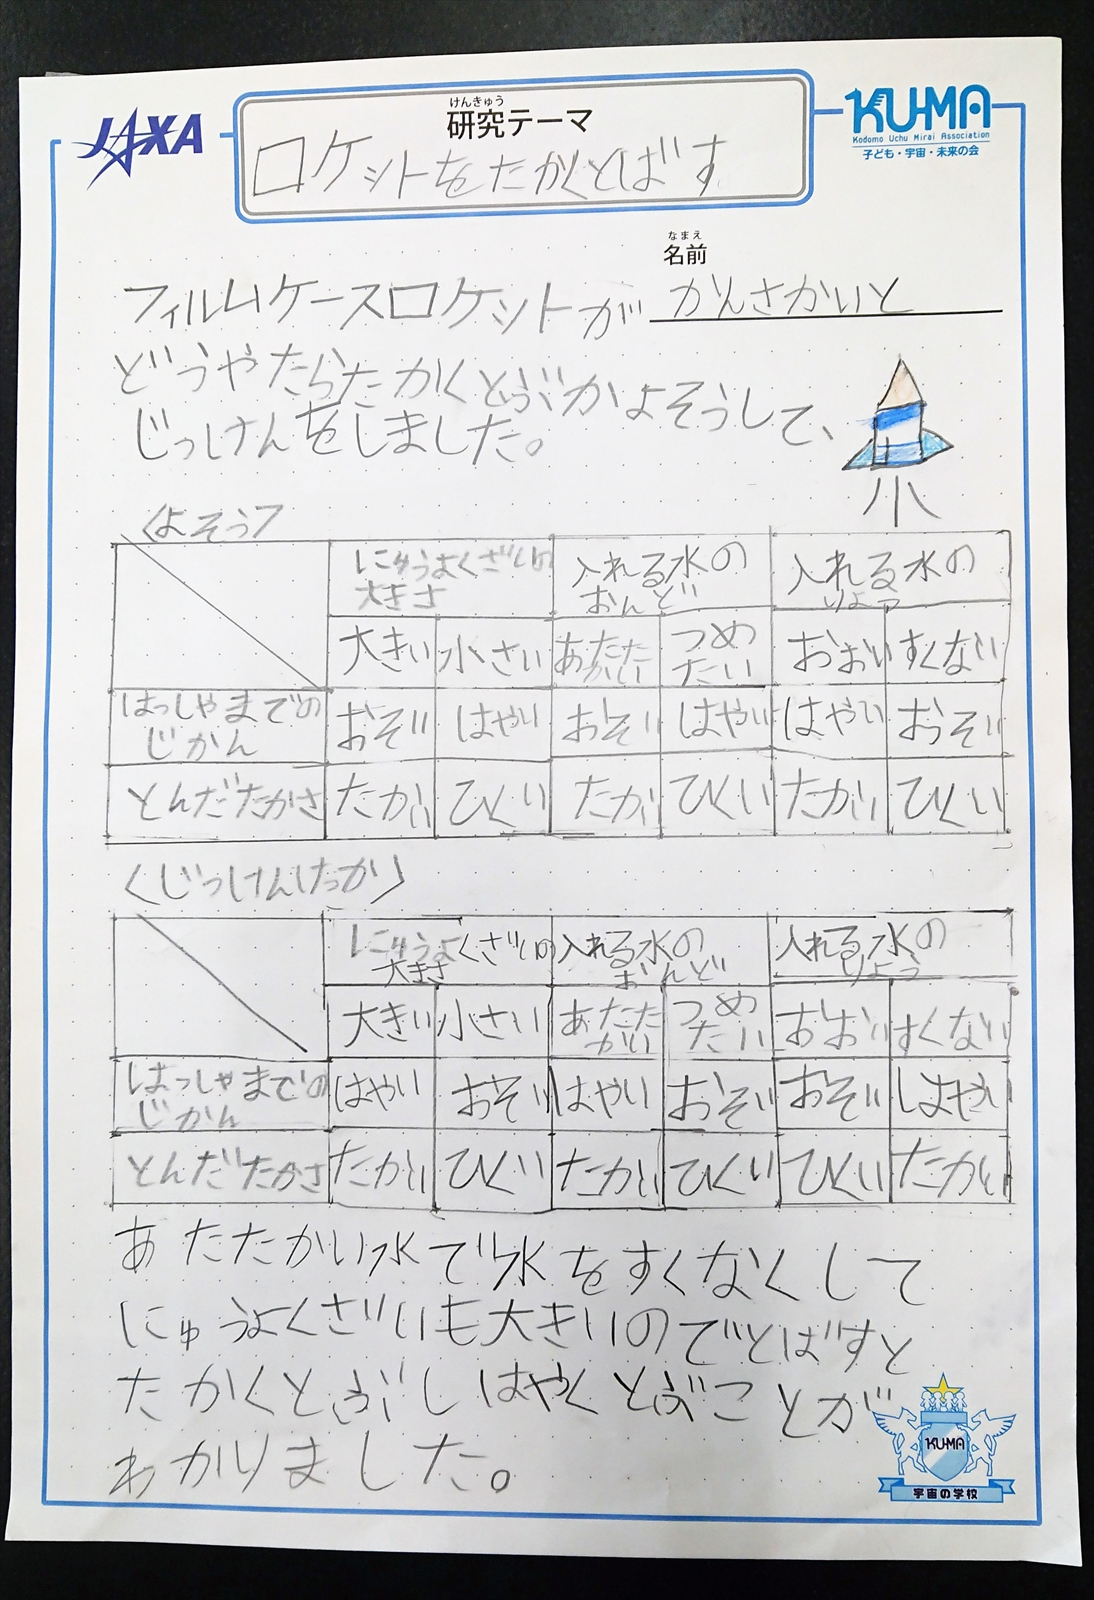 JAXA
けんきゅう
研究テーマ
ロケットをたかくとばす
KU-MA
Kodomo Uchu Mirai Association
子ども・宇宙・未来の会
なまえ
名前
かんさかいと
フィルムケースロケットが
どうやたらたかくとぶかよそうして、
じっけんをしました。
〈よそう〉
にゅうよくざいの 入れる水の 入れる水の
大きさ おんど りょう
大きい 小さい あたたかい つめたい おおい すくない
はっしゃまでの
じかん おそい はやい おそい はやい はやい おそい
とんだたかさ たかい ひくい たかい ひくい たかい ひくい
〈じっけんけっか〉
にゅうよくざいの 入れる水の 入れる水の
大きさ おんど りょう
大きい 小さい あたたかい つめたい おおい すくない
はっしゃまでの
じかん はやい おそい はやい おそい おそい はやい
とんだたかさ たかい ひくい たかい ひくい ひくい たかい
あたたかい水で水をすくなくして
にゅうよくざいも大きいのでとばすと
たかくとぶしはやくとぶことが
わかりました。
KU-MA
宇宙の学校